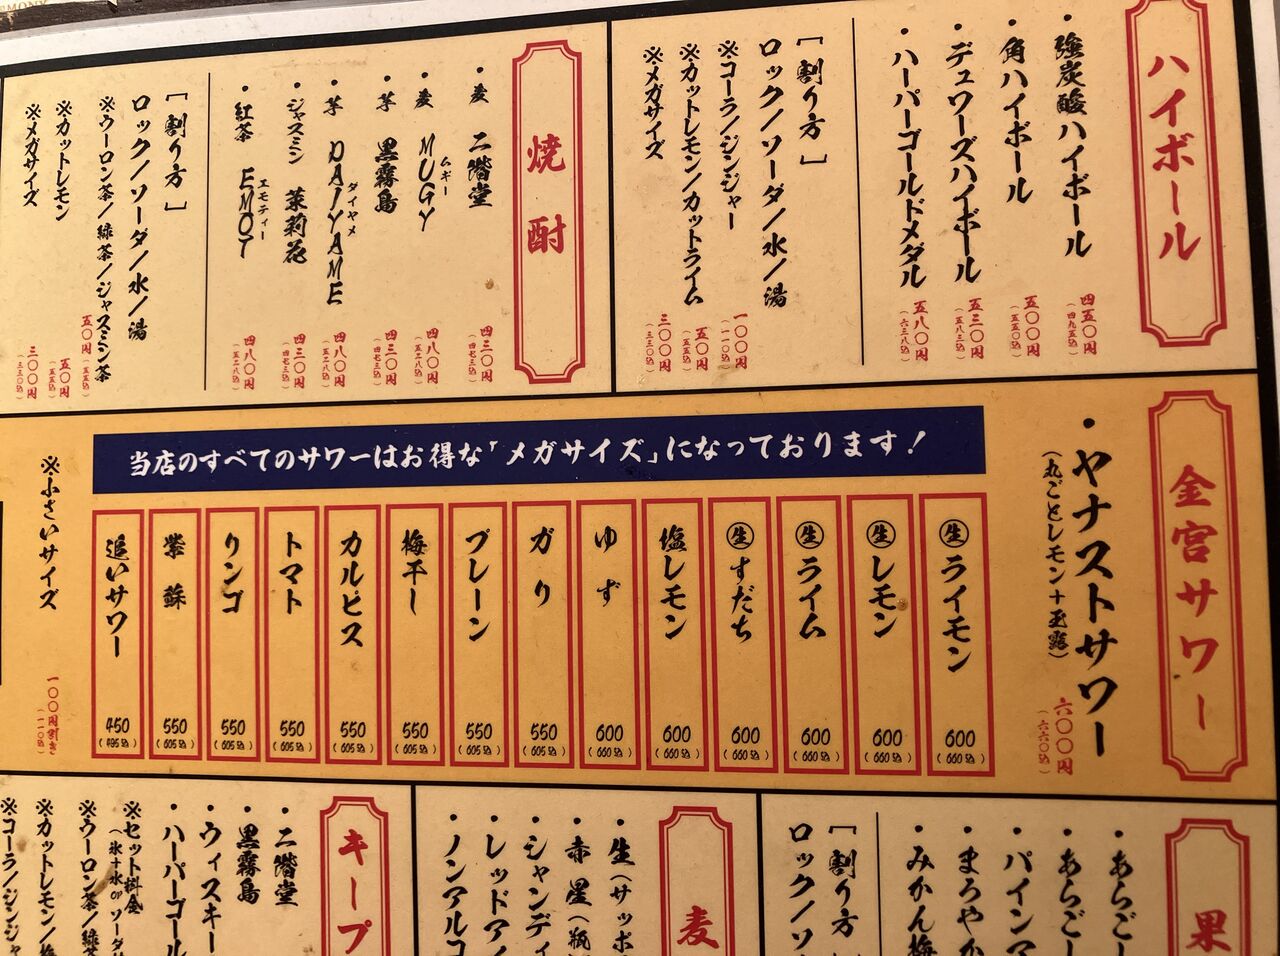 ハイボール
・強炭酸ハイボール 四五〇円
(四九五込)
・角ハイボール 五〇〇円
(五五〇込)
・デュワーズハイボール 五三〇円
(五八三込)
・ハーパーゴールドメダル 五八〇円
(六三八込)
[割り方]
ロック/ソーダ/水/湯
※コーラ/ジンジャー 一〇〇円
(一一〇込)
※カットレモン/カットライム 五〇円
(五五込)
※メガサイズ 三〇〇円
(三三〇込)
焼酎
・麦 二階堂 四三〇円
(四七三込)
・麦 MUGY 四八〇円
ムギー
(五二八込)
・芋 黒霧島 四三〇円
(四七三込)
・芋 DAIYAME 四八〇円
ダイヤメ
(五二八込)
・ジャスミン 茉莉花 四三〇円
(四七三込)
・紅茶 EMOT 四八〇円
エモティー
(五二八込)
[割り方]
ロック/ソーダ/水/湯
※ウーロン茶/緑茶/ジャスミン茶 五〇円
(五五込)
※カットレモン 五〇円
(五五込)
※メガサイズ 三〇〇円
(三三〇込)
金宮サワー
・ヤナストサワー 六〇〇円
(丸ごとレモン+玉露) (六六〇込)
当店のすべてのサワーはお得な「メガサイズ」になっております!
生ライモン 600
(660込)
生レモン 600
(660込)
生ライム 600
(660込)
生すだち 600
(660込)
塩レモン 600
(660込)
ゆず 600
(660込)
ガリ 550
(605込)
プレーン 550
(605込)
梅干し 550
(605込)
カルピス 550
(605込)
トマト 550
(605込)
リンゴ 550
(605込)
紫蘇 550
(605込)
追いサワー 450
(495込)
※小さいサイズ 一〇〇円引き
(一一〇込)
果
・あらごし
・あらごし
・パインア
・まろやか
・みかん梅
[割り方]
ロック/ソ
麦
・生(サッポ
・赤星(瓶
・シャンディ
・レッドアイ
・ノンアルコ
キープ
・二階堂
・黒霧島
・ウィスキー
・ハーパーゴール
※セット料金
(氷+水or ソーダ
※ウーロン茶/緑茶
※カットレモン/梅
※コーラ/ジンジャ